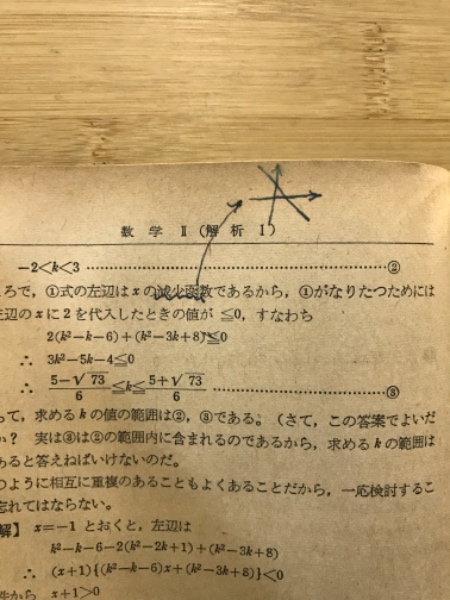 数学 II (解析 I)
-2<k<3 ………②
ろで，①式の左辺は x の減少函数であるから，①がなりたつためには
左辺の x に 2 を代入したときの値が ≦0，すなわち
2(k²-k-6)+(k²-3k+8)≦0
∴ 3k²-5k-4≦0
∴ (5-√73)/6≦k≦(5+√73)/6 ………③
って，求める k の値の範囲は②，③である。（さて，この答案でよいだ
か？ 実は③は②の範囲内に含まれるのであるから，求める k の範囲は
あると答えねばいけないのだ。
つように相互に重複のあることもよくあることだから，一応検討するこ
忘れてはならない。
解】 x=-1 とおくと，左辺は
k²-k-6-2(k²-2k+1)+(k²-3k+8)
∴ (x+1){(k²-k-6)x+(k²-3k+8)}<0
件から x+1>0